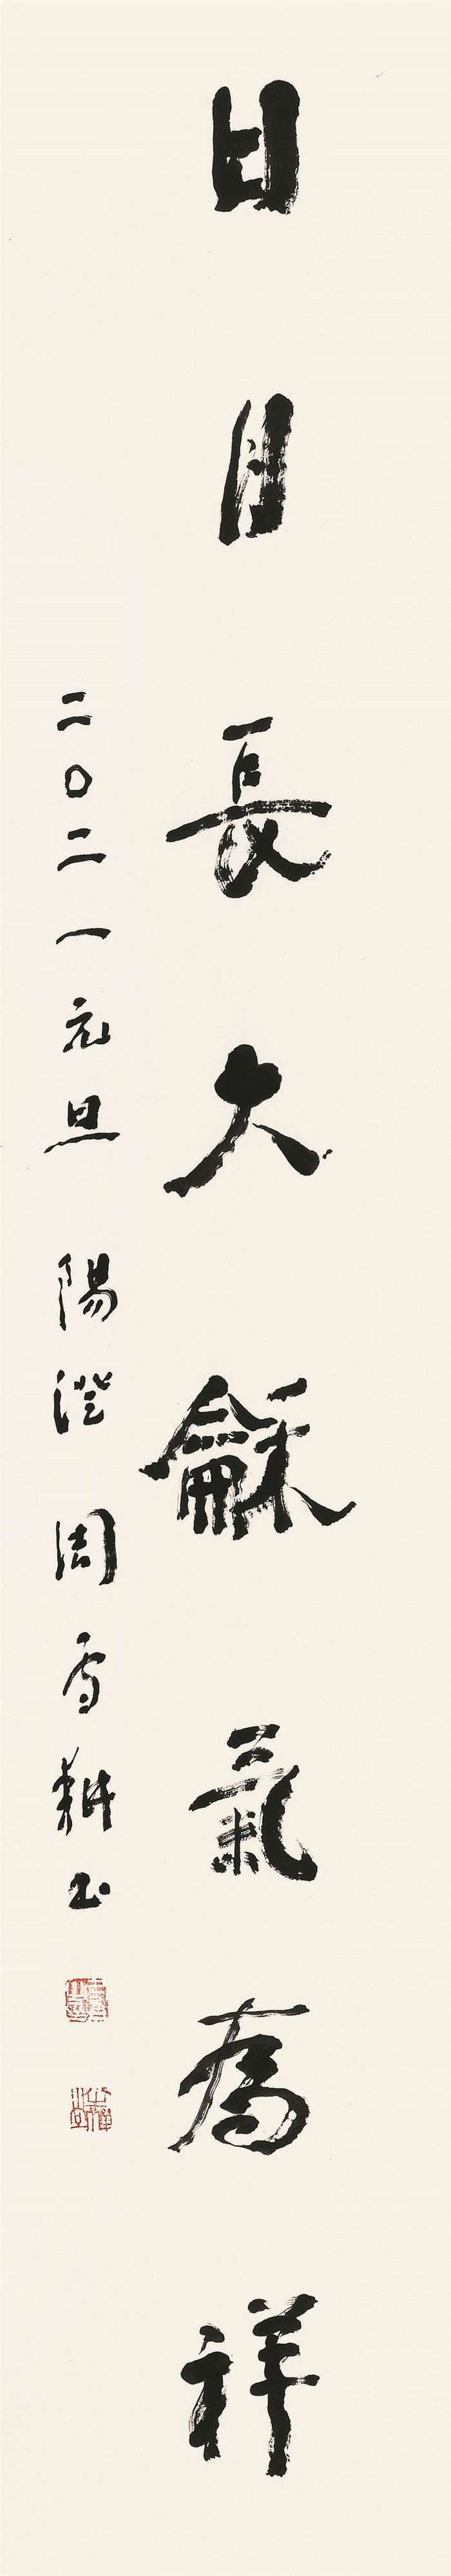 日月長久龢氣為祥
二〇二一元旦 陽澄周雪耕书